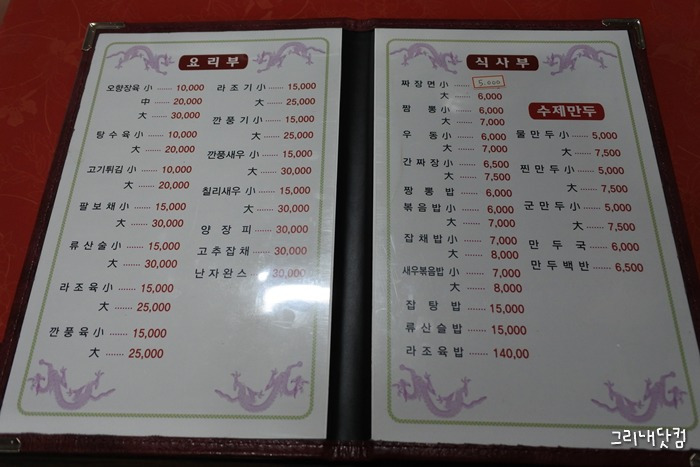 요리부
오향장육 小 ...... 10,000
中 ...... 20,000
大 ...... 30,000
탕수육 小 ...... 10,000
大 ...... 20,000
고기튀김 小 ...... 10,000
大 ...... 20,000
팔보채 小 ...... 15,000
大 ...... 30,000
류산슬 小 ...... 15,000
大 ...... 30,000
라조육 小 ...... 15,000
大 ...... 25,000
깐풍육 小 ...... 15,000
大 ...... 25,000
라조기 小 ...... 15,000
大 ...... 25,000
깐풍기 小 ...... 15,000
大 ...... 25,000
깐풍새우 小 ...... 15,000
大 ...... 30,000
칠리새우 小 ...... 15,000
大 ...... 30,000
양장피 ...... 30,000
고추잡채 ...... 30,000
난자완스 ...... 30,000
식사부
짜장면 小 ...... 5.000
大 ...... 6,000
짬뽕 小 ...... 6,000
大 ...... 7,000
우동 小 ...... 6,000
大 ...... 7,000
간짜장 小 ...... 6,500
大 ...... 7,500
짱뽕밥 ...... 6,000
볶음밥 小 ...... 6,000
大 ...... 7,000
잡채밥 小 ...... 7,000
大 ...... 8,000
새우볶음밥 小 ...... 7,000
大 ...... 8,000
잡탕밥 ...... 15,000
류산슬밥 ...... 15,000
라조육밥 ...... 140,00
수제만두
물만두 小 ...... 5,000
大 ...... 7,500
찐만두 小 ...... 5,000
大 ...... 7,500
군만두 小 ...... 5,000
大 ...... 7,500
만두국 ...... 6,000
만두백반 ...... 6,500
그리내닷컴